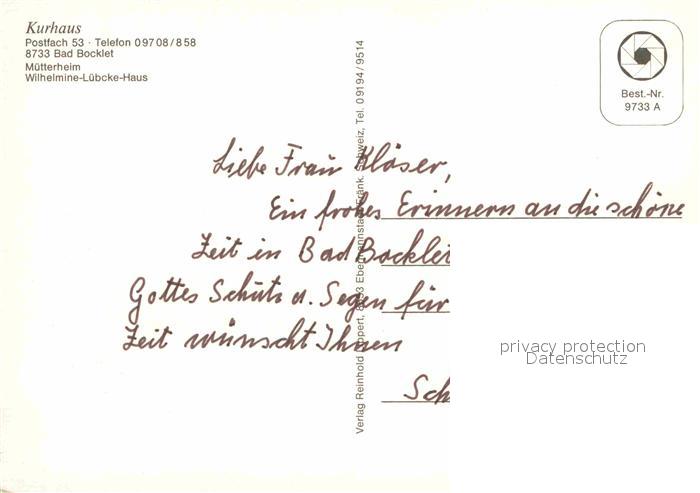 Kurhaus
Postfach 53 · Telefon 09708/858
8733 Bad Bocklet
Mütterheim
Wilhelmine-Lübcke-Haus
Best.-Nr.
9733 A
Liebe Frau Kläser,
Ein frohes Erinnern an die schöne
Zeit in Bad Bocklet
Gottes Schutz u. Segen für
Zeit wünscht Ihnen
Sch
Verlag Reinhold Ebermannstadt/Fränk. Schweiz, Tel. 09194/9514
privacy protection
Datenschutz